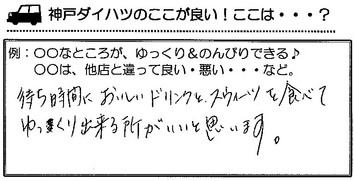 神戸ダイハツのここが良い！ここは・・・？
例：○○なところが、ゆっくり＆のんびりできる♪
○○は、他店と違って良い・悪い・・・など。
待ち時間においしいドリンクと、スウィーツを食べて
ゆっくり出来る所がいいと思います。